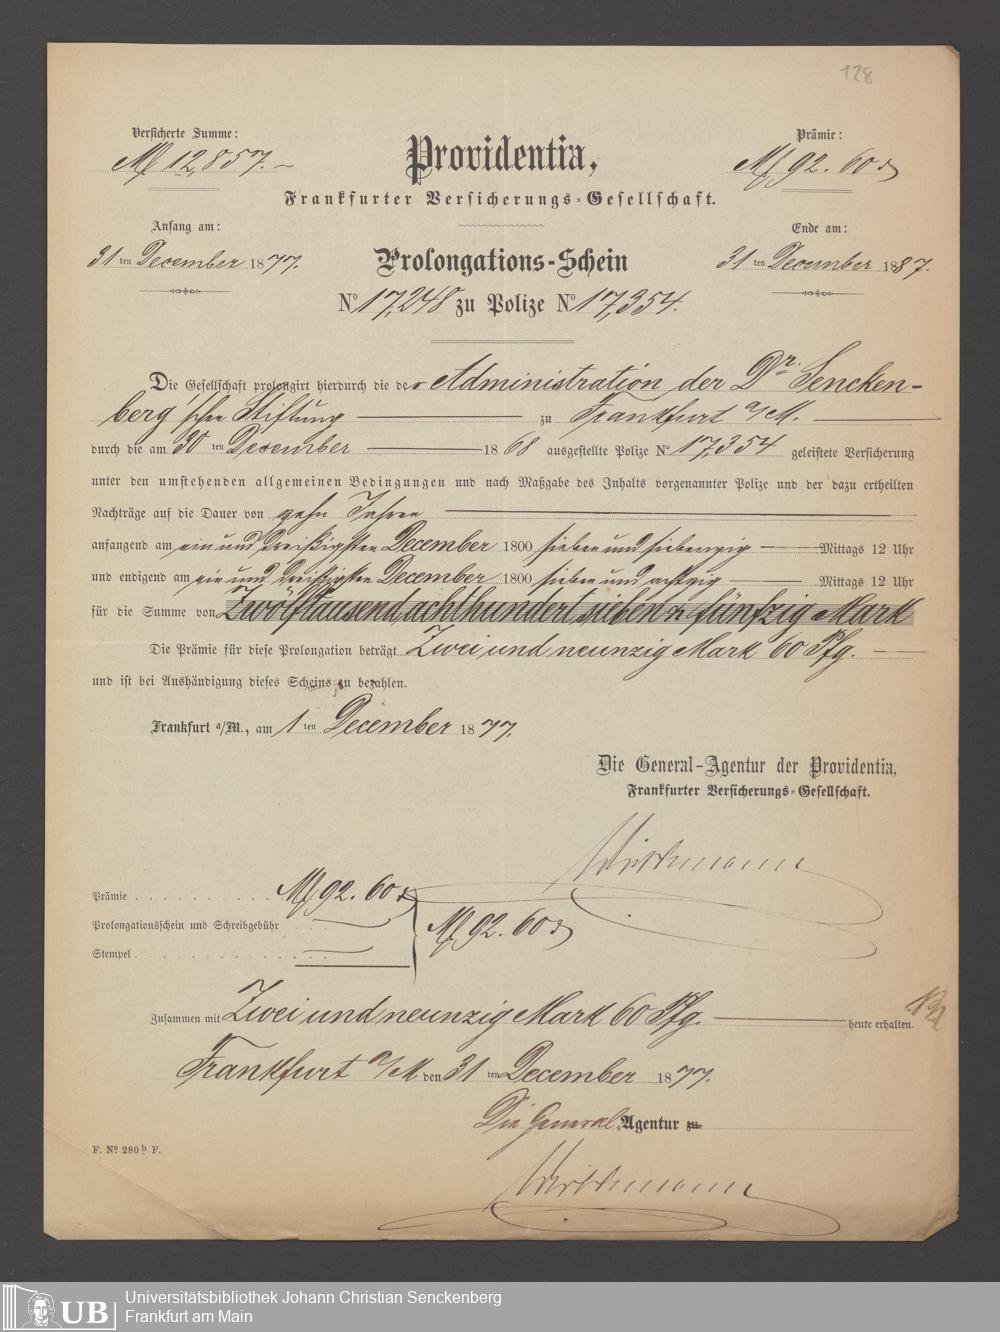 128
Versicherte Summe:
M 12,857.–
Providentia,
Frankfurter Versicherungs-Gesellschaft.
Prämie:
M 92. 60 ₰
Anfang am:
31ten December 1877.
Prolongations-Schein
No 17,248 zu Polize No 17,354.
Ende am:
31ten December 1887.
Die Gesellschaft prolongirt hierdurch die der Administration der Dr. Sencken-
berg'schen Stiftung zu Frankfurt a/M.
durch die am 30ten December 1868 ausgestellte Polize No 17,354 geleistete Versicherung
unter den umstehenden allgemeinen Bedingungen und nach Maßgabe des Inhalts vorgenannter Polize und der dazu ertheilten
Nachträge auf die Dauer von zehn Jahren
anfangend am ein und dreißigsten December 1800 sieben und siebenzig Mittags 12 Uhr
und endigend am ein und dreißigsten December 1800 sieben und achtzig Mittags 12 Uhr
für die Summe von Zwölftausend achthundert sieben u. fünfzig Mark
Die Prämie für diese Prolongation beträgt Zwei und neunzig Mark 60 Pfg.
und ist bei Aushändigung dieses Scheins zu bezahlen.
Frankfurt a/M., am 1ten December 1877.
Die General-Agentur der Providentia,
Frankfurter Versicherungs-Gesellschaft.
Prämie . . . . . . . . . . M 92. 60 ₰
Prolongationsschein und Schreibgebühr . . . . –
M 92. 60 ₰
Stempel . . . . . . . . . . . . . . –
Zusammen mit Zwei und neunzig Mark 60 Pfg. heute erhalten.
Frankfurt a/M den 31ten December 1877.
Die General-Agentur zu
F. No 280 b F.
UB
Universitätsbibliothek Johann Christian Senckenberg
Frankfurt am Main